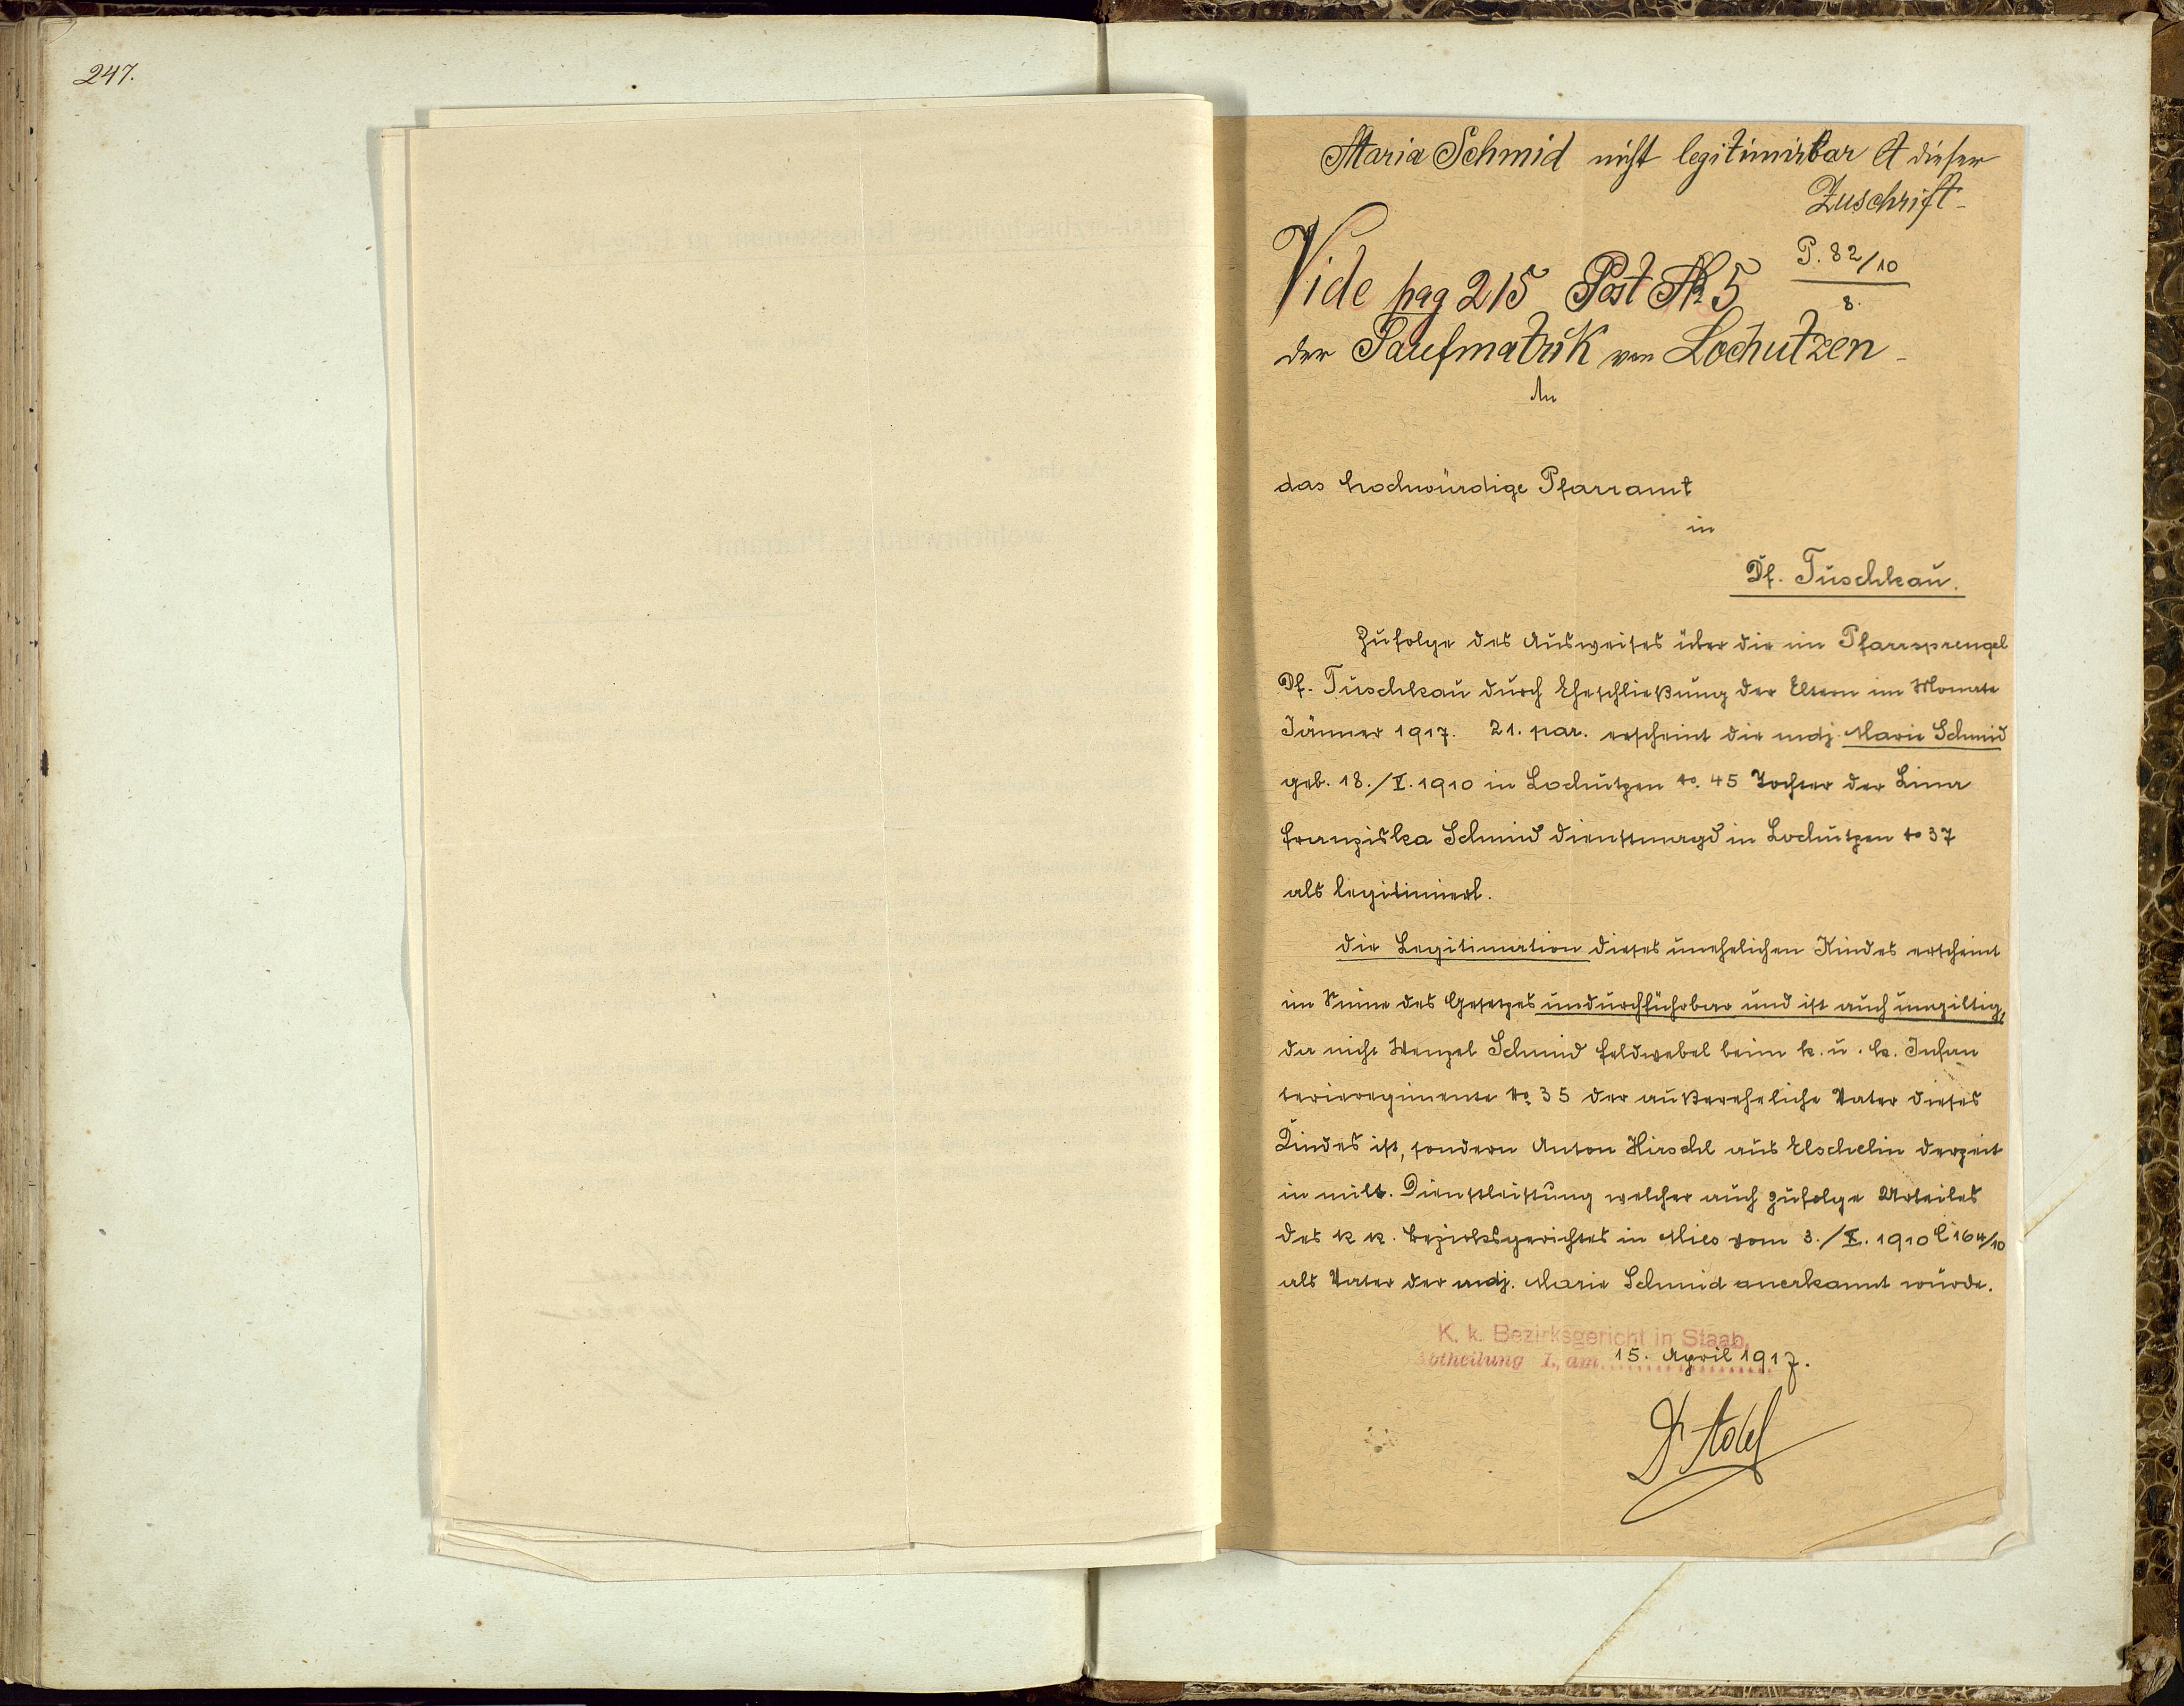 247.
Maria Schmid nicht legitimirbar lt dieser
Zuschrift-
Vide pag 215 Post № 5
P. 82/10
8.
der Taufmatrik von Lochutzen -
An
das hochwürdige Pfarramt
in
Df. Tuschkau.
Zufolge des Ausweises über die im Pfarrsprengel
Df. Tuschkau durch Eheschließung der Eltern im Monate
Jänner 1917. 21. par. erscheint die mdj. Marie Schmid
geb. 18./V. 1910 in Lochutzen No. 45 Tochter der
Franziska Schmid Dienstmagd in Lochutzen No 37
als legitimiert.
Die Legitimation dieses unehelichen Kindes erscheint
im Sinne des Gesetzes undurchführbar und ist auch ungiltig,
da nicht Wenzel Schmid Feldwebel beim k. u. k. Infan
terieregimente No. 35 der außereheliche Vater dieses
Kindes ist, sondern Anton Hirschl aus Elschelin derzeit
in milt. Dienstleistung welcher auch zufolge Urteiles
des k k. Bezirksgerichtes in Mies vom 3./X. 1910 C 164/10
als Vater der mdj. Marie Schmid anerkannt wurde.
K. k. Bezirksgericht in Staab,
Abtheilung I., am 15. April 1917.